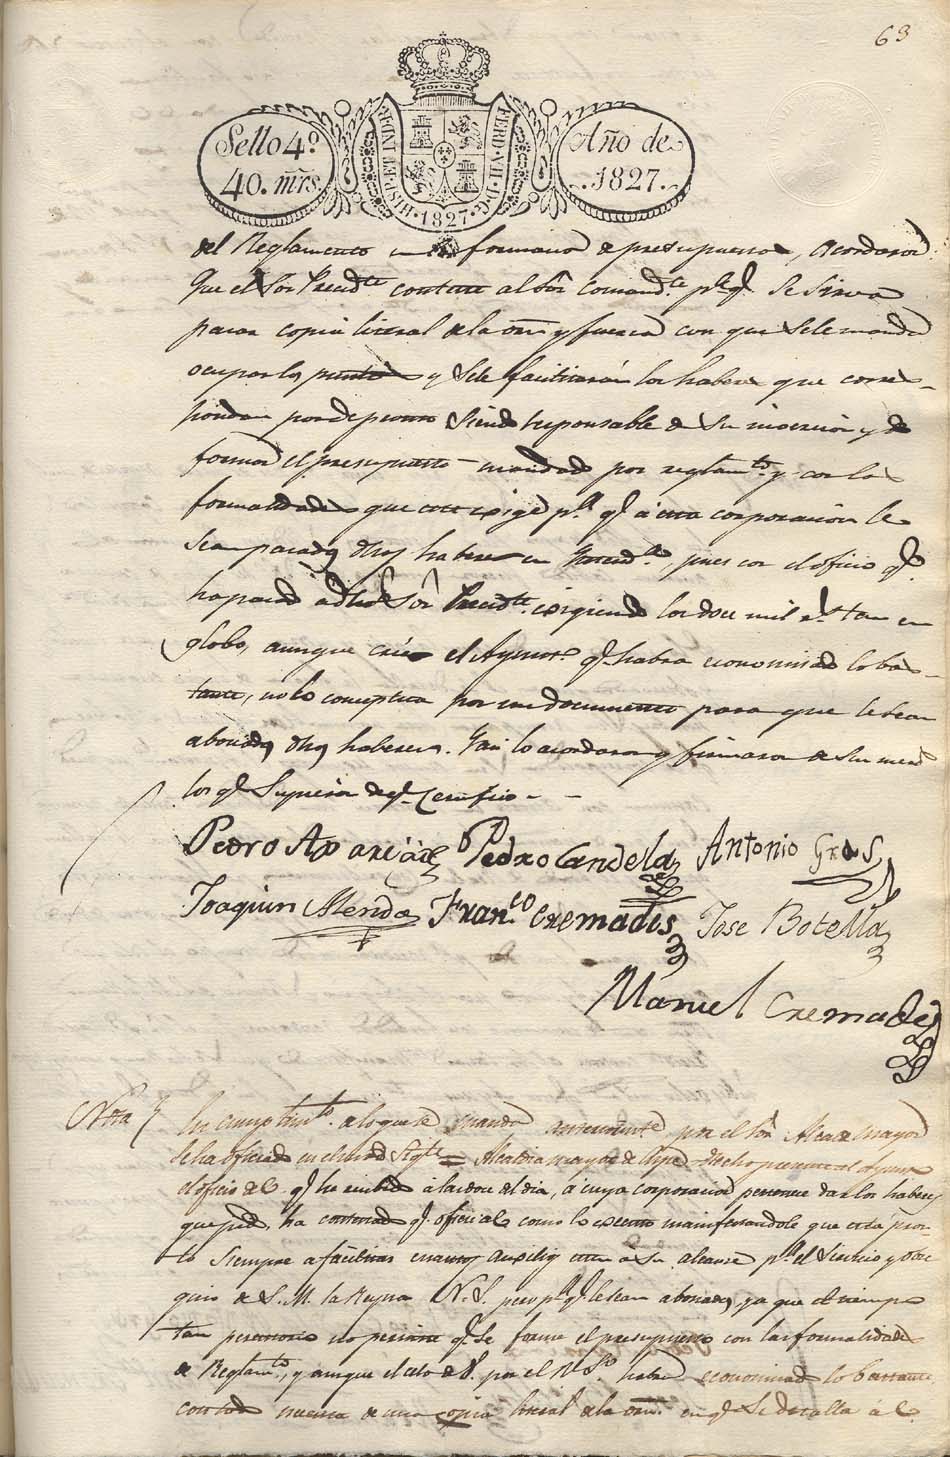 63
Sello 4º
40. mrs
HISP. ET IND. R.
FERD. VII. D. G.
1827
Año de
1827.
del Reglamento en formación de presupuestos, acordaron
Que el Sor Presidte conteste al Sor Comandte pa. q. se sirva
pasar copia literal de la orn y fuerza con que se le manda
ocupar los puntos y se le facilitarán los haberes que corres-
pondan por de pronto siendo responsable de su inversion y de
formar el presupuesto mandado por reglamto y con las
formalidades que este exige pa. q. a esta corporacion le
sean pasados dhos haberes en , pues con el oficio q.
ha pasado a dho Sor Presidte exigiendo los doce mil rs tan en
globo, aunque cree el Ayunto q. habra economisado lo bas-
tante, no lo conceptua por un documento para que le sean
abonados dhos haberes. Asi lo acordaron y firmaron de sus mrds
los q. supieron de q. Certifico
Pedro Aparicio Pedro Candela Antonio Gras
Joaquin Merida Franco Cremades Jose Botella
Manuel Cremades
Nota En cumplimto a lo que se manda anteriormte por el Sor Alcalde mayor
se ha oficiado en el modo sigte = Alcaldia mayor de = He hecho presente al Ayunto
el oficio de V. q. he recibido a las doce del dia, a cuya corporacion pertenece dar los haberes
que pide, ha contestado q. oficiale como lo executo manifestandole que esta pron-
to siempre a facilitar cuantos auxilios esten a su alcance pa. el servicio y obse-
quio de S. M. la Reyna N. S. pero pa. q. le sean abonados, ya que el tiempo
tan perentorio no permite q. se forme el presupuesto con las formalidades
de Reglamto, y aunque el celo de V. por el Rl So habra economisado lo bastante,
con todo necesita de una copia literal de la orn. en q. se detalla a V.